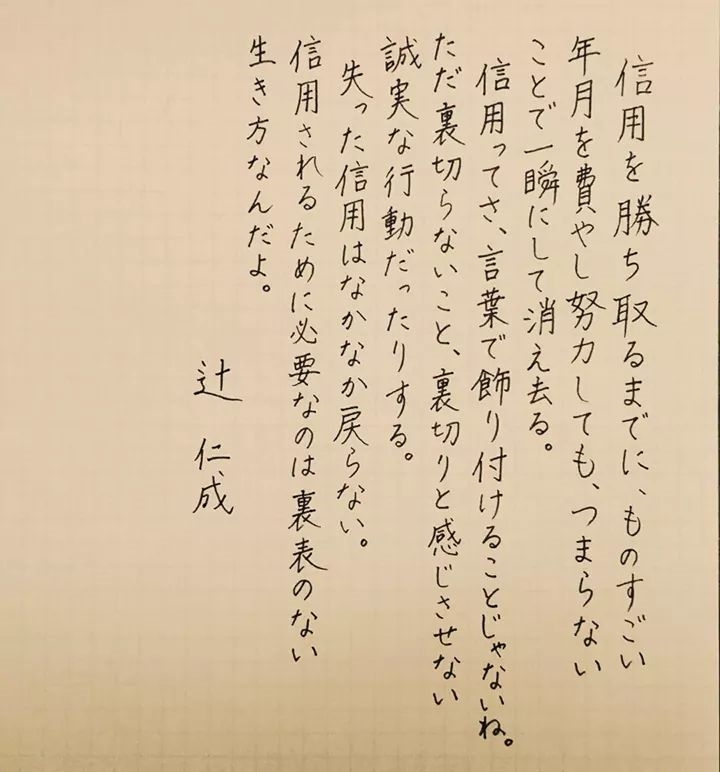 信用を勝ち取るまでに、ものすごい
年月を費やし努力しても、つまらない
ことで一瞬にして消え去る。
信用ってさ、言葉で飾り付けることじゃないね。
ただ裏切らないこと、裏切りと感じさせない
誠実な行動だったりする。
失った信用はなかなか戻らない。
信用されるために必要なのは裏表のない
生き方なんだよ。
辻 仁成